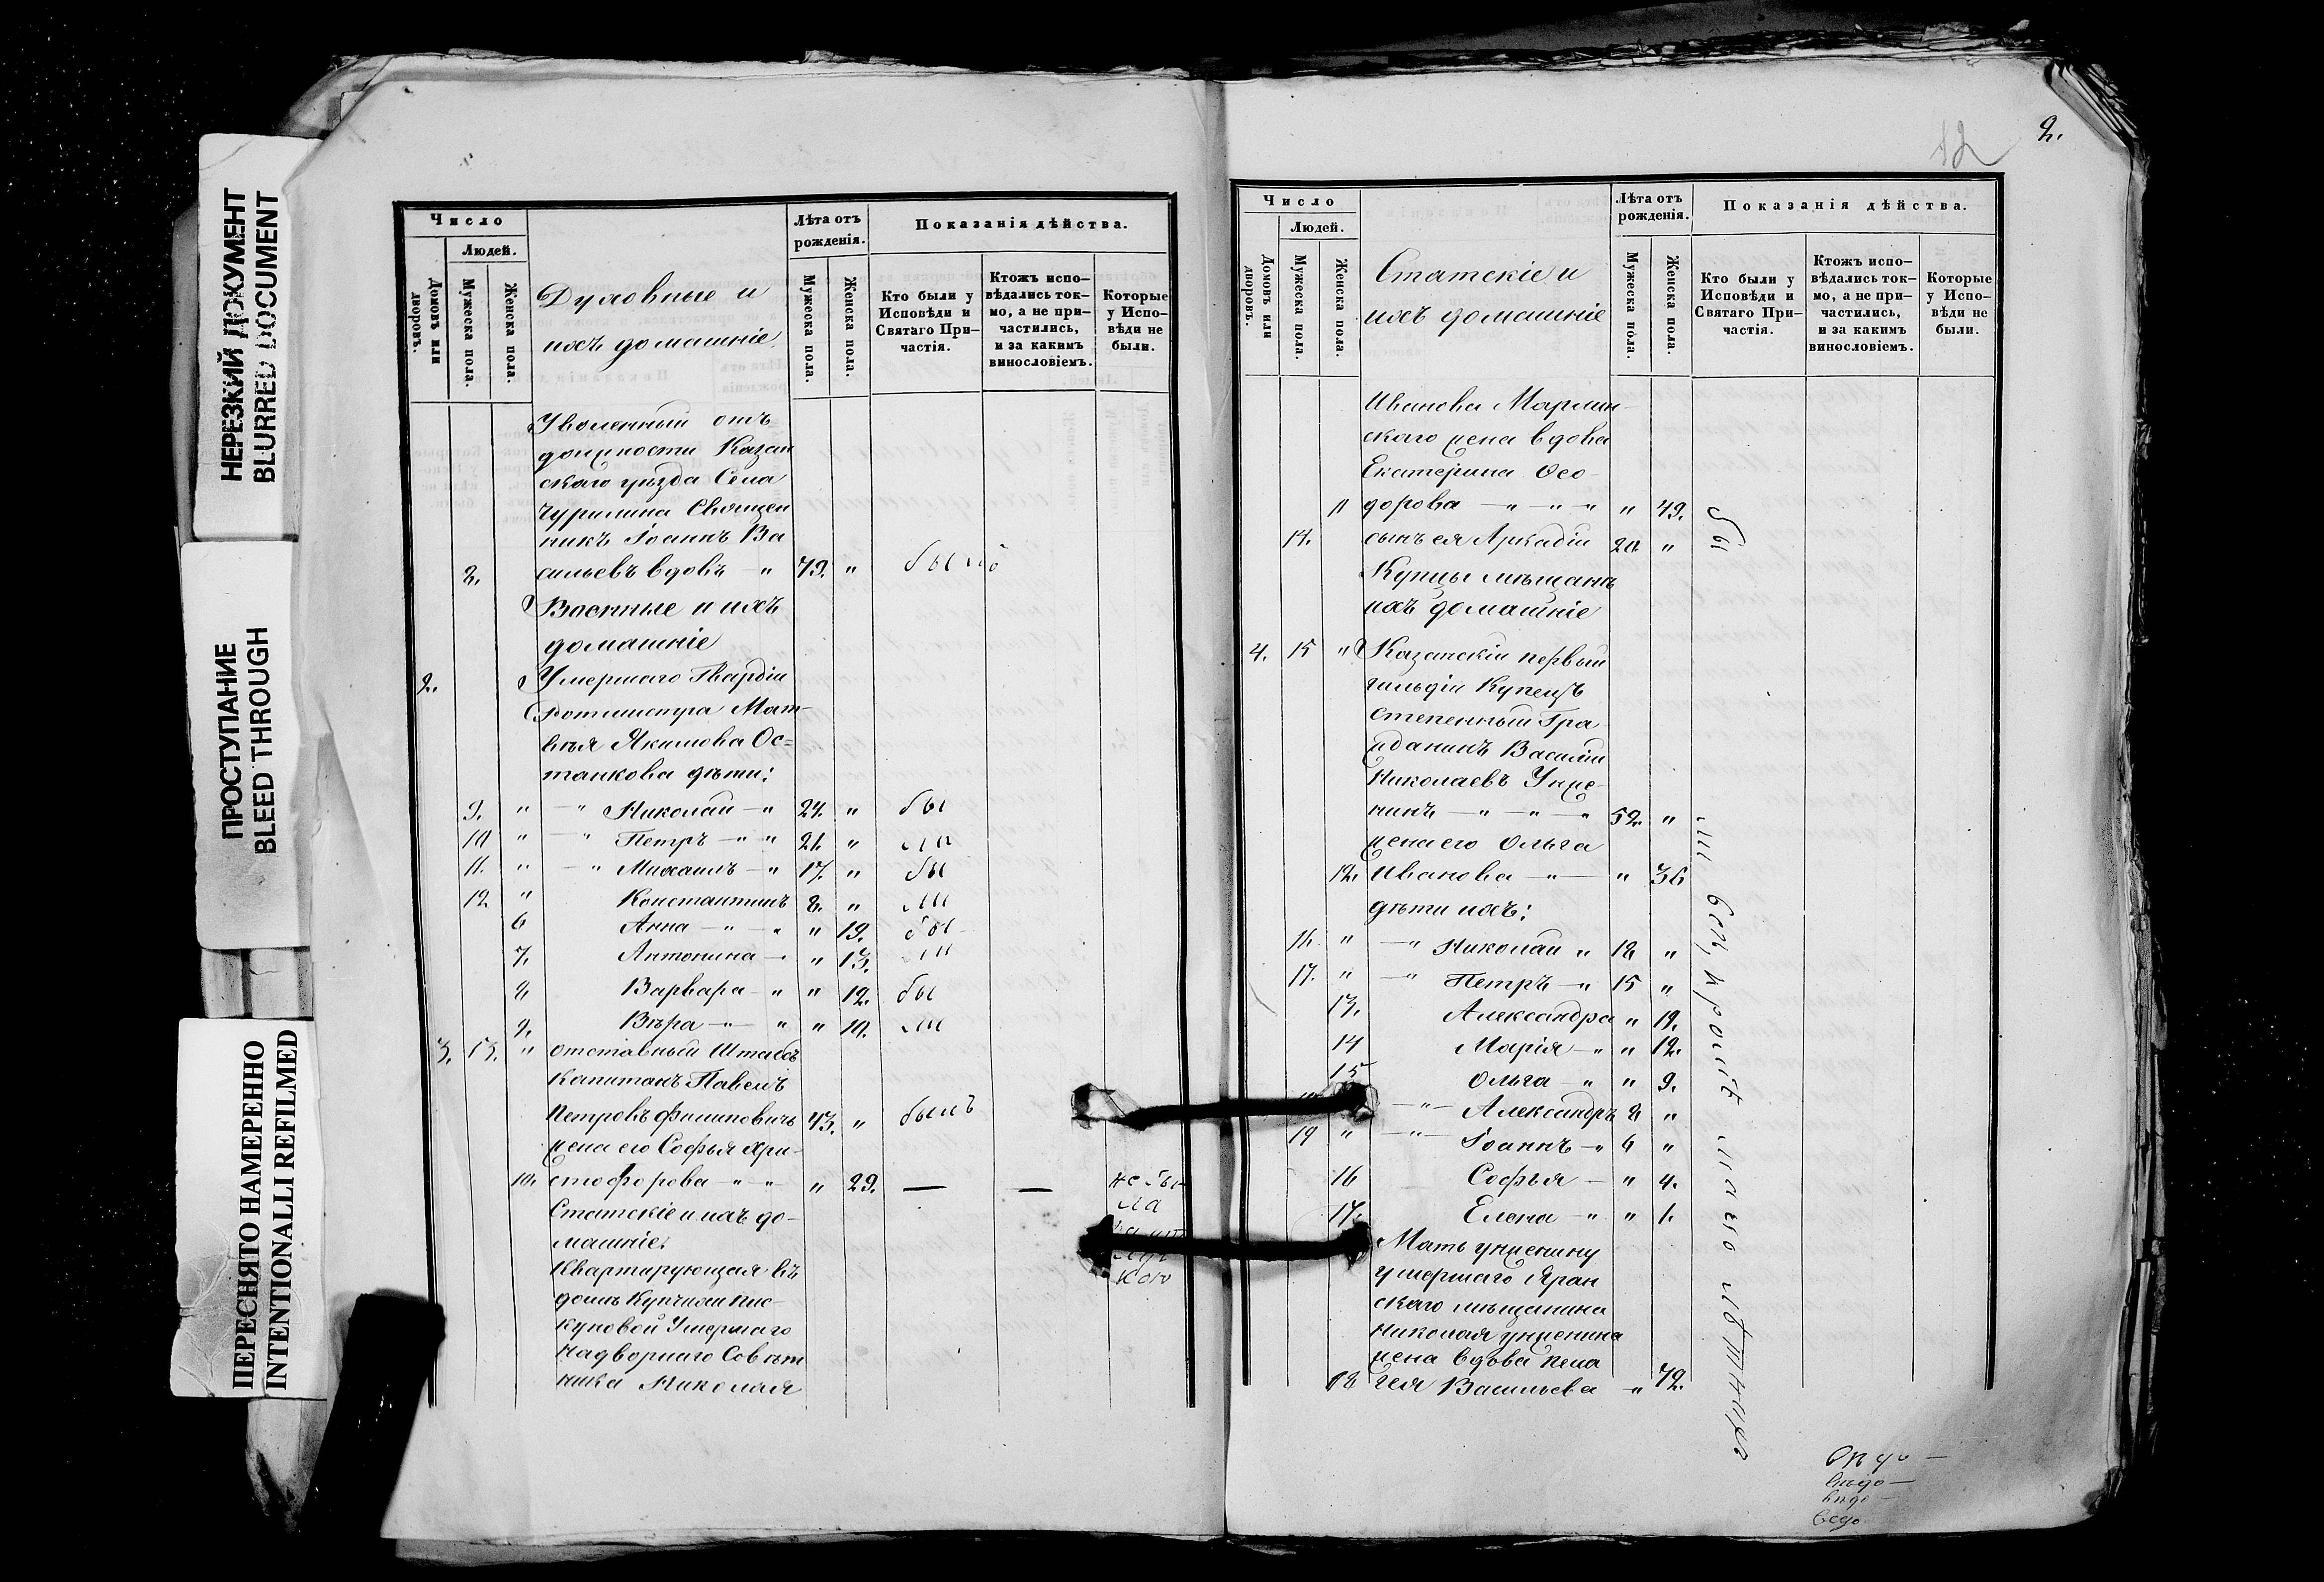 НЕРЕЗКИЙ ДОКУМЕНТ
BLURRED DOCUMENT
ПРОСТУПАНИЕ
BLEED THROUGH
ПЕРЕСНЯТО НАМЕРЕННО
INTENTIONALLI REFILMED
Число
Людей.
Домовъ или дворовъ.
Мужеска пола.
Женска пола.
Духовные и
ихъ домашніе
Лѣта отъ рожденія.
Мужеска пола.
Женска пола.
Показанія дѣйства.
Кто были у Исповѣди и Святаго При-частія.
Ктожъ испо-вѣдались ток-мо, а не при-частились, и за какимъ винословіемъ.
Которые у Испо-вѣди не были.
Уволенный отъ
должности Казан
скаго уѣзда Села
Чурилина Священ
никъ Іоаннъ Ва
сильевъ вдовъ — " 79. " былъ
Военные и ихъ
домашніе
2. Умершаго Гвардіи
Ротмистра Мат-
вѣя Якимова Ос=
танкова дѣти:
9. " — " Николай — " 24. " бы
10 " — " Петръ — " " 21. " ли
11. " — " Михаилъ — " 17. " бы
12 " Константинъ 8. " ли
6 Анна — " — " " 19. бы
7. Антонина — " " 13. ли
8. Варвара — " " 12. бы
9. Вѣра — " — " " 10. ли
3. 13. " отставный Штабсъ
Капитанъ Павелъ
Петровъ Филиповичъ 43. " былъ
жена его Софья Хри-
10. стофорова — " — " " 29. — — не бы-
ла
кою
Статскіе и ихъ до-
машніе.
Квартирующая въ
домѣ Купчихи Пис-
куновой Умершаго
Надворнаго Совѣт
ника Николая
12
2.
Число
Людей.
Домовъ или дворовъ.
Мужеска пола.
Женска пола.
Статскіе и
ихъ домашніе
Лѣта отъ рожденія.
Мужеска пола.
Женска пола.
Показанія дѣйства.
Кто были у Исповѣди и Святаго При-частія.
Ктожъ испо-вѣдались ток-мо, а не при-частились, и за какимъ винословіемъ.
Которые у Испо-вѣди не были.
Иванова Марлин-
скаго жена вдова
Екатерина Ѳео-
11 дорова — " — " — " " 49.
14. сынъ ея Аркадіи 20. "
Купцы мѣщанъ
ихъ домашніе
4. 15 " Казанскіи первый
гильдіи Купецъ
Степенный Гра
жданинъ Василіи
Николаевъ Унже-
нинъ — " — " — " 52. "
жена его Ольга
12. Иванова — " — " 36
дѣти ихъ:
16. " — " Николай " 18 "
17. " — " Петръ — " 15 "
13. Александра " 19.
14 Марія — " " 12.
15 Ольга — " " 9.
— " — Александръ 8 "
19 " — " — Іоаннъ — " 6 "
16 Софья — " 4.
17. Елена — " " 1.
Мать унженину
умершаго Яран
скаго мѣщанина
Николая унженина
жена вдова Пела
18 гея Васильева — " 72.
бы
ли безъ кромѣ мало лѣтнихъ